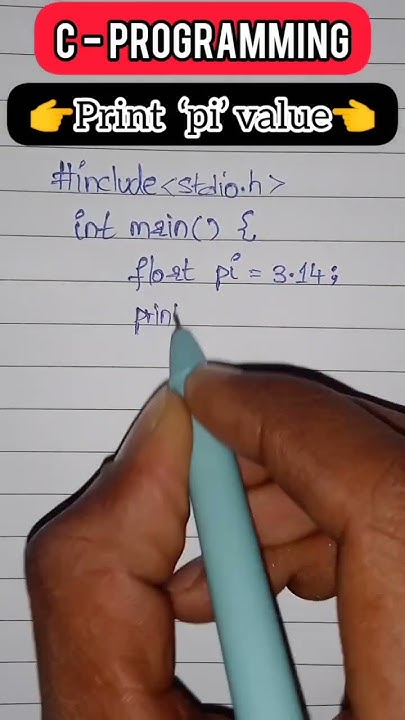 C - PROGRAMMING
👉Print 'pi' value👈
#include<stdio.h>
int main() {
float pi = 3.14;
prin